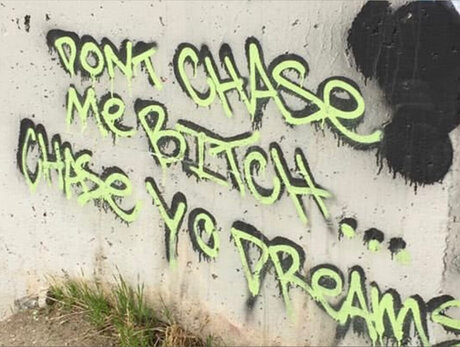 DONT CHASE
Me BITCH...
CHASe YO DReAMS